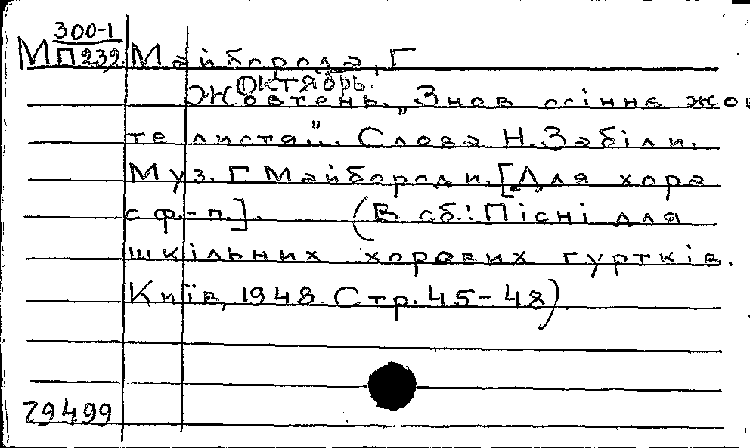 300-1
М П 232 Майборода, Г
Октябрь.
Жовтень. „Знов осіннє жов
те листя". Слова Н. Забіли.
Муз. Г Майбороди. [Для хора
с ф.-п.]. (В сб.: Пісні для
шкільних хорових гуртків.
Київ, 1948. Стр. 45-48)
29499